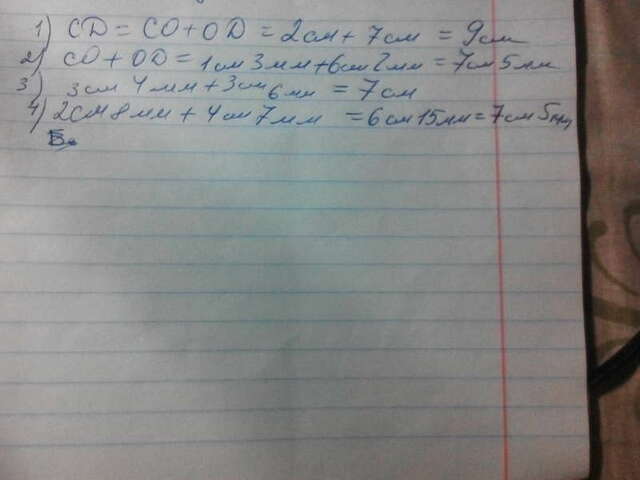 1) CD = CO + OD = 2 см + 7 см = 9 см
2) CO + OD = 1 см 3 мм + 6 см 2 мм = 7 см 5 мм
3) 3 см 4 мм + 3 см 6 мм = 7 см
4) 2 см 8 мм + 4 см 7 мм = 6 см 15 мм = 7 см 5 мм